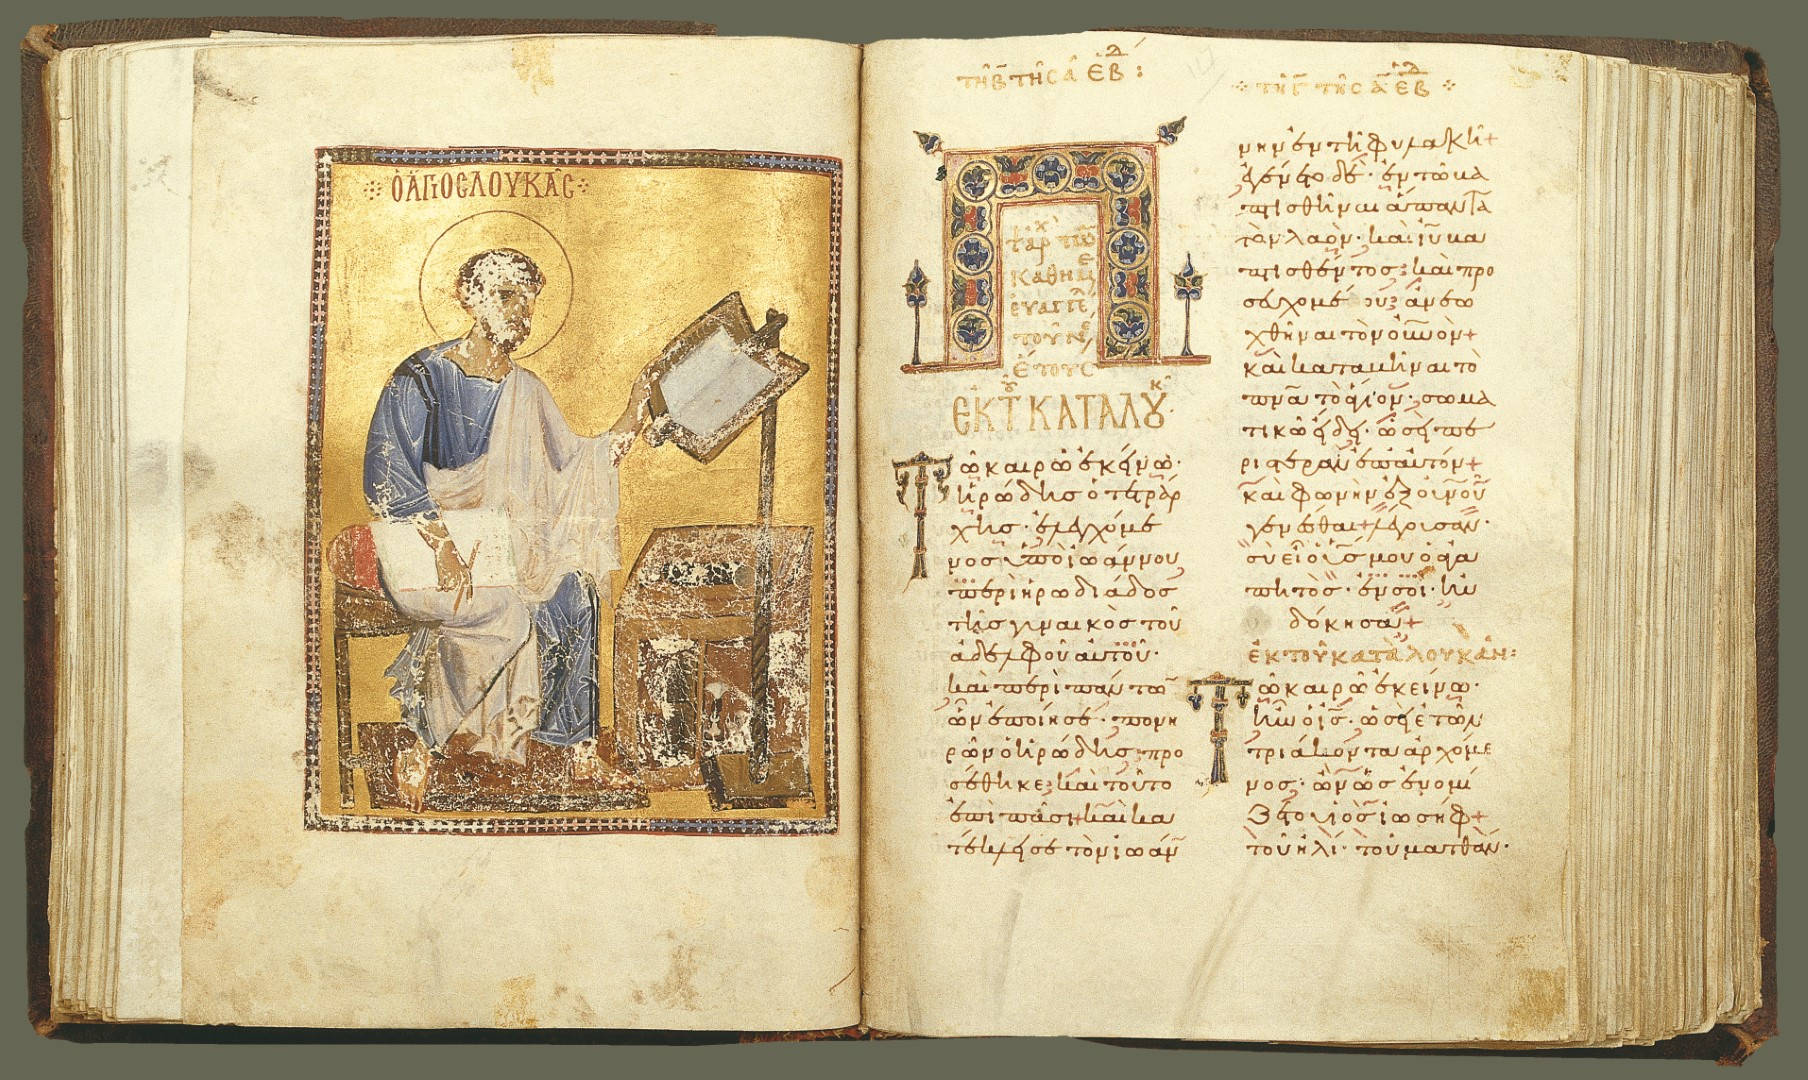 ὁ ἅγιος Λουκᾶς
τῇ β τῆς α ἑβδ
ἀρχ τῶν
καθημε
εὐαγγ
τοῦ νέ
ἔτους
ἐκ τοῦ κατὰ Λουκ
Τῷ καιρῷ ἐκείνῳ·
Ἡρώδης ὁ τετράρ
χης· ἐλεγχόμε
νος ὑπὸ ἰωάννου
περὶ ἡρωδιάδος
τῆς γυναικὸς τοῦ
ἀδελφοῦ αὐτοῦ·
καὶ περὶ πάντων
ὧν ἐποίησε· πονη
ρῶν ὁ ἡρώδης· προ
σέθηκε καὶ τοῦτο
ἐπὶ πᾶσι + καὶ κα
τέκλεισε τὸν ἰωάν
τῇ γ τῆς α ἑβδ
νην ἐν τῇ φυλακῇ +
ἐγένετο δέ· ἐν τῷ βα
πτισθῆναι ἅπαντα
τὸν λαὸν· καὶ ἰῦ βα
πτισθέντος καὶ προ
σευχομένου· ἀνεῳ
χθῆναι τὸν οὐνὸν +
καὶ καταβῆναι τὸ
πνᾶ τὸ ἅγιον· σωμα
τικῷ εἴδει· ὡσεὶ πε
ριστερὰν ἐπ' αὐτόν +
καὶ φωνὴν ἐξ οὐνοῦ
γενέσθαι + λέγουσαν·
σὺ εἶ ὁ υἱός μου ὁ ἀγα
πητός· ἐν σοὶ· ηὐ
δόκησα +
ἐκ τοῦ κατὰ λουκᾶν:
Τῷ καιρῷ ἐκείνῳ·
ἦν ὁ ἰς· ὡσεὶ ἐτῶν
τριάκοντα ἀρχόμε
νος· ὢν ὡς ἐνομί
ζετο υἱὸς ἰωσὴφ +
τοῦ ἡλί· τοῦ ματθάν·